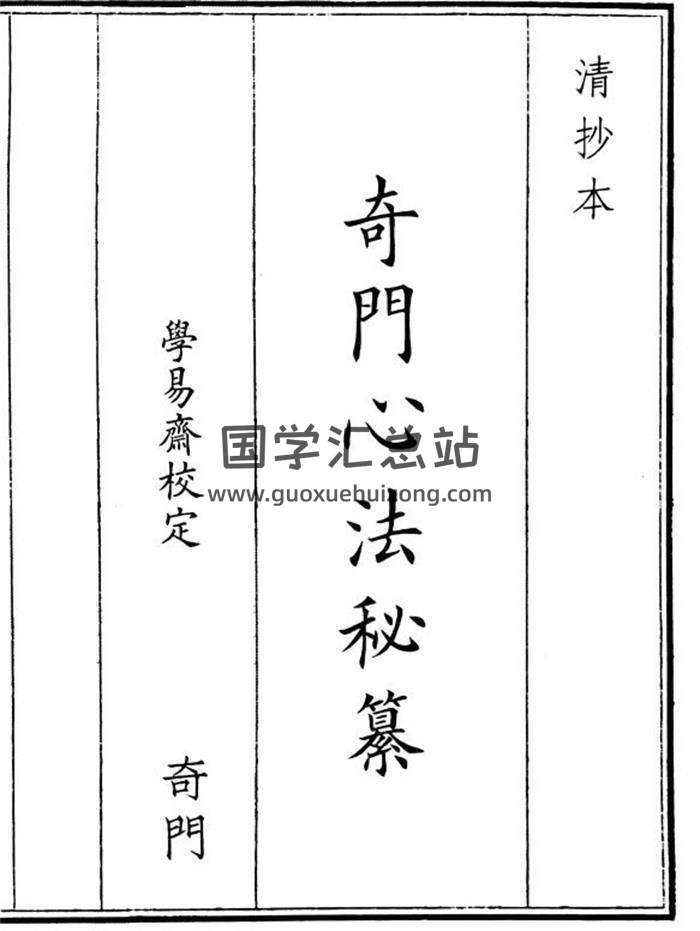 清抄本
奇門心法秘纂
學易齋校定
奇門
国学汇总站
www.guoxuehuizong.com